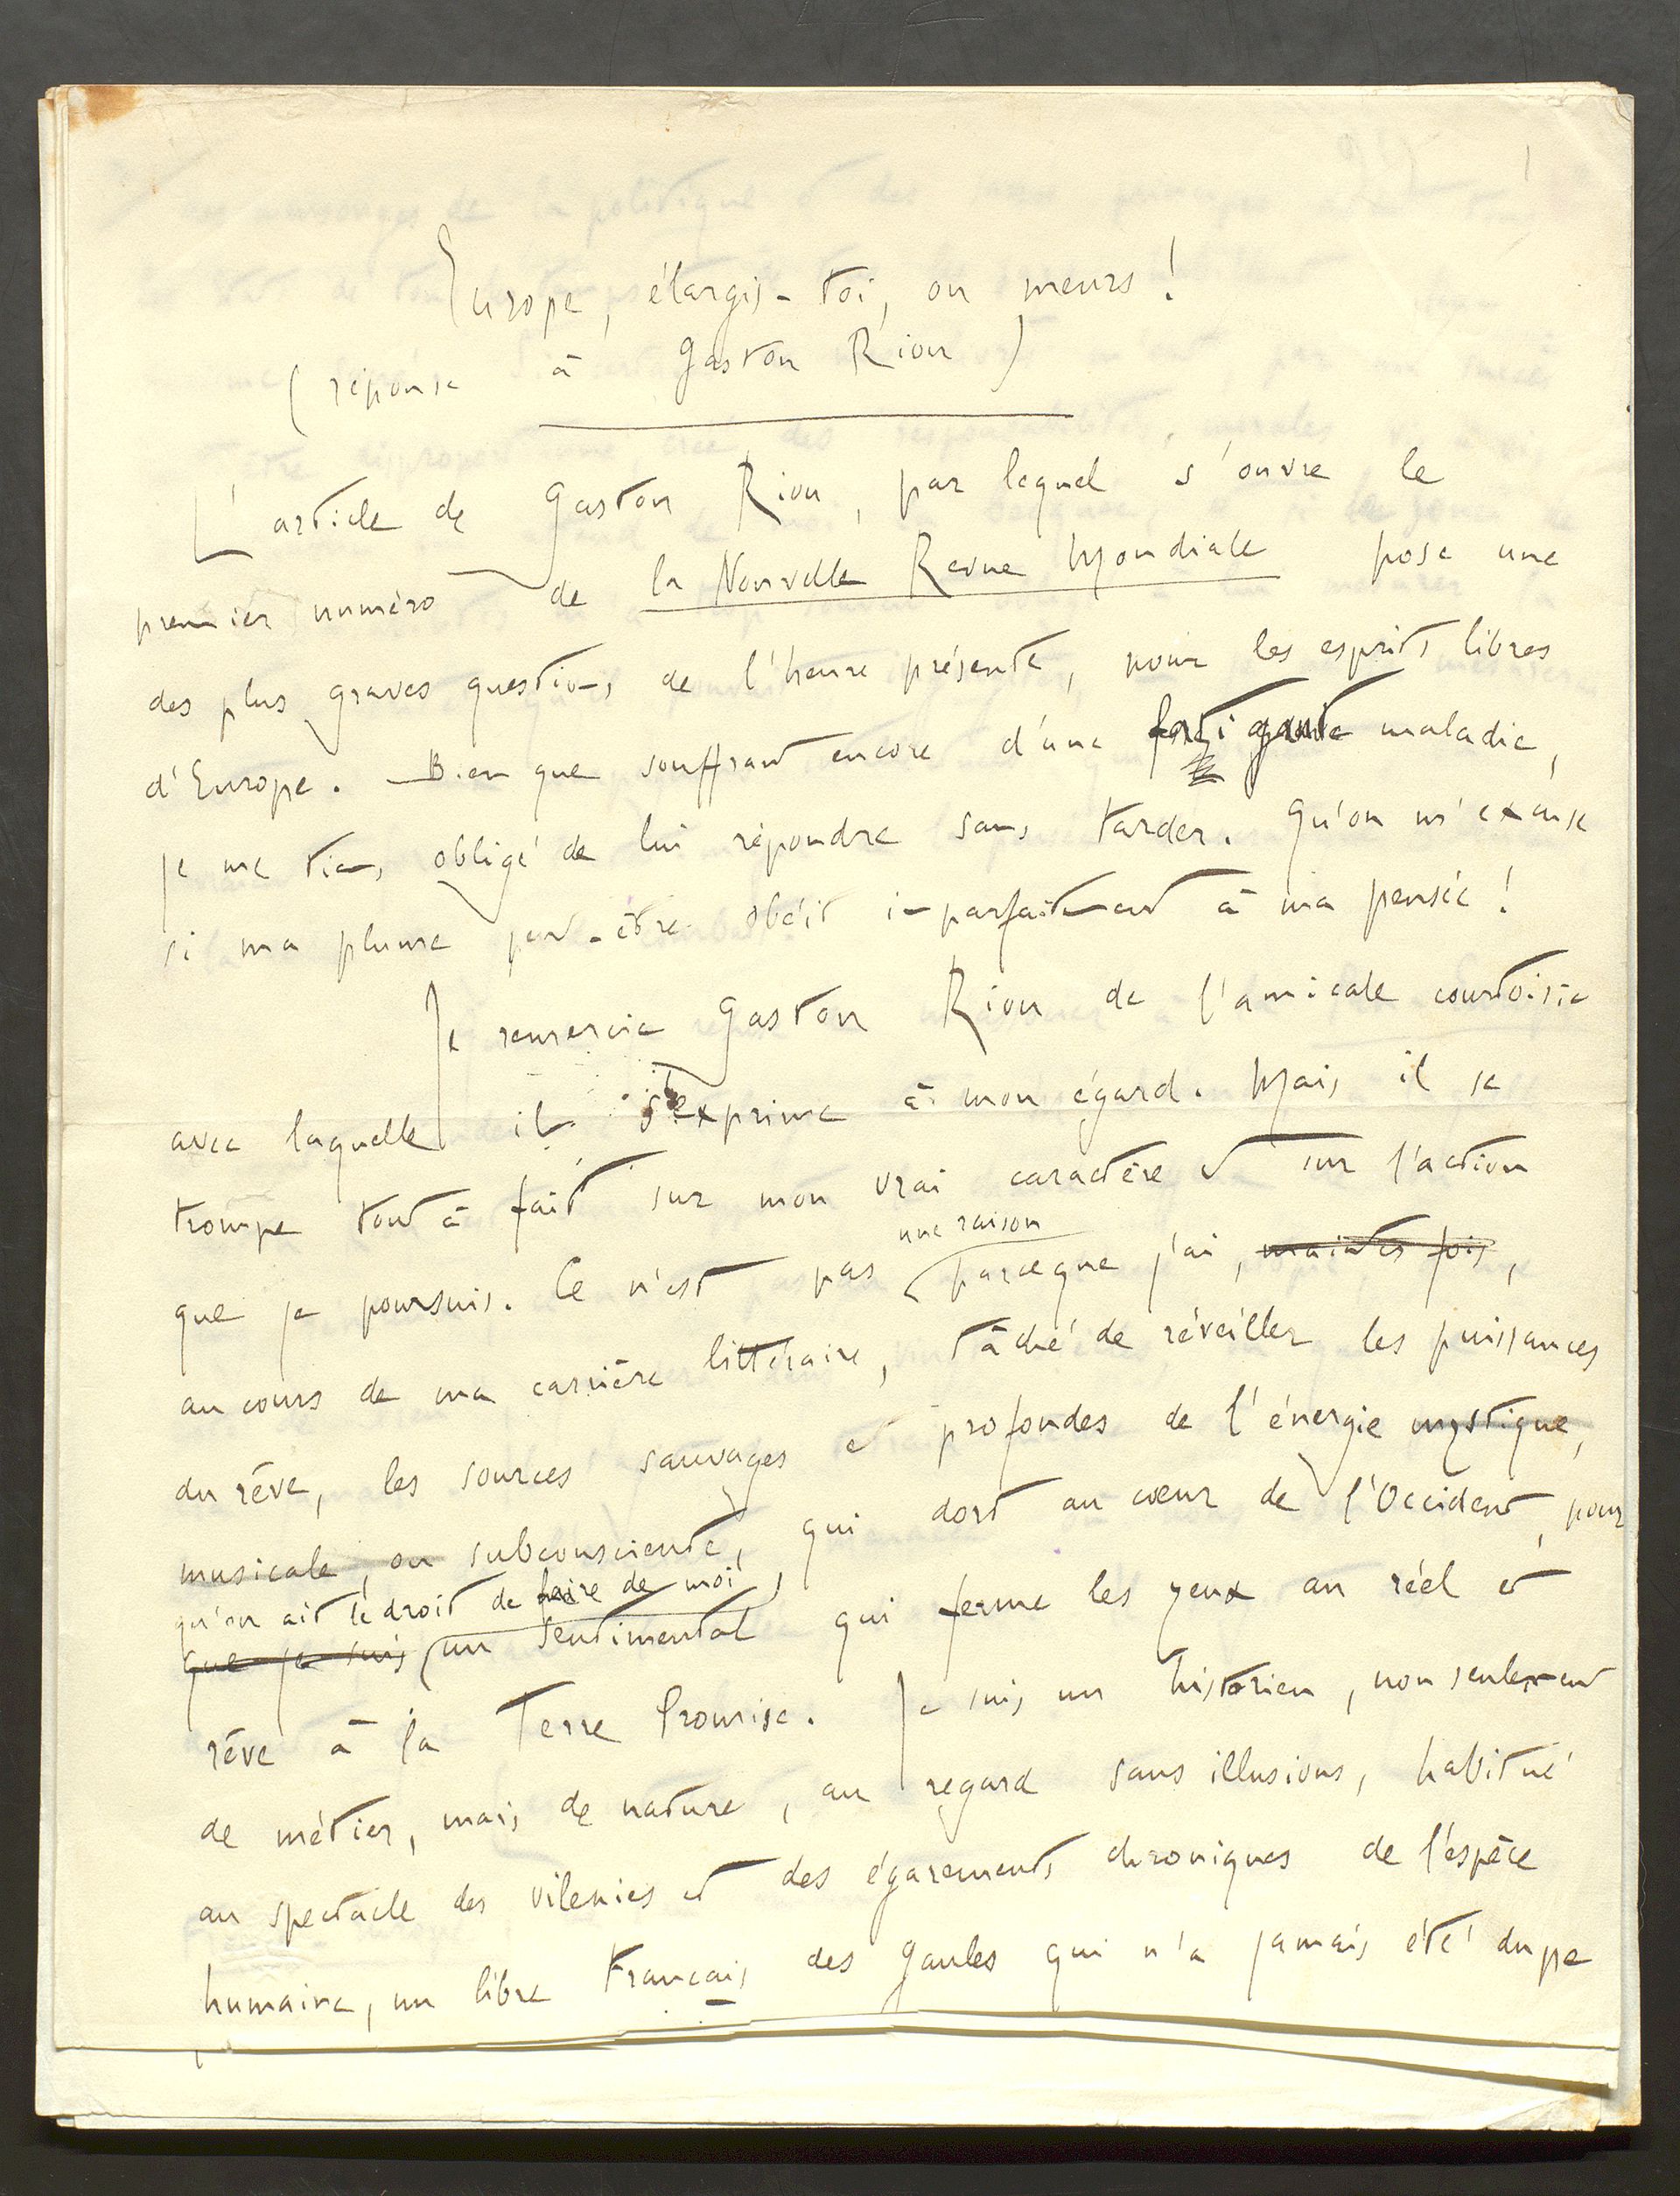 Europe, élargis-toi, ou meurs !
(réponse à Gaston Riou)
L'article de Gaston Riou, par lequel s'ouvre le
premier numéro de la Nouvelle Revue Mondiale pose une
des plus graves questions de l'heure présente, pour les esprits libres
d'Europe. — Bien que souffrant encore d'une fatigante maladie,
je me tiens obligé de lui répondre sans tarder. Qu'on m'excuse
si ma plume peut-être obéit imparfaitement à ma pensée !
Je remercie Gaston Riou de l'amicale courtoisie
avec laquelle il s'exprime à mon égard. Mais il se
trompe tout à fait sur mon vrai caractère et sur l'action
une raison
que je poursuis. Ce n'est pas parceque j'ai, maintes fois,
au cours de ma carrière littéraire, tâché de réveiller les puissances
du rêve, les sources sauvages et profondes de l'énergie mystique,
musicale, ou subconsciente, qui dort au cœur de l'Occident, pour
qu'on ait le droit de faire de moi
que je suis un sentimental qui ferme les yeux au réel et
rêve à la Terre Promise. Je suis un historien, non seulement
de métier, mais de nature, au regard sans illusions, habitué
au spectacle des vilenies et des égarements chroniques de l'espèce
humaine, un libre Français des Gaules qui n'a jamais été dupe